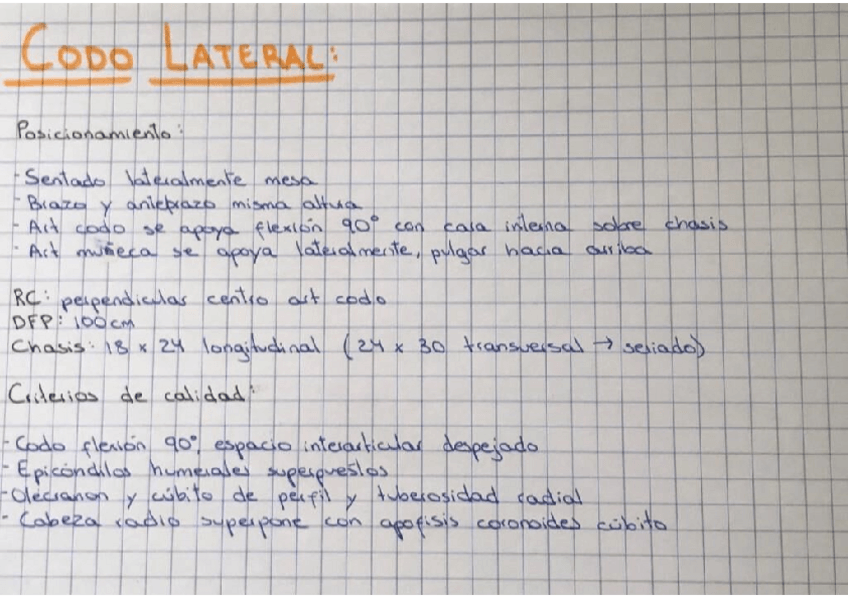 CODO LATERAL:
Posicionamiento:
- Sentado lateralmente mesa
- Brazo y antebrazo misma altura
- Art codo se apoya flexión 90° con cara interna sobre chasis
- Art muñeca se apoya lateralmente, pulgar hacia arriba
RC: perpendicular centro art codo
DFP: 100cm
Chasis: 18 x 24 longitudinal (24 x 30 transversal → seriado)
Criterios de calidad:
- Codo flexión 90°, espacio interarticular despejado
- Epicóndilos humerales superpuestos
- Olécranon y cúbito de perfil y tuberosidad radial
- Cabeza radio superpone con apofisis coronoides cúbito